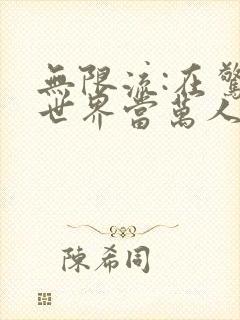 無限流:在驚
世界當萬人
陳希同